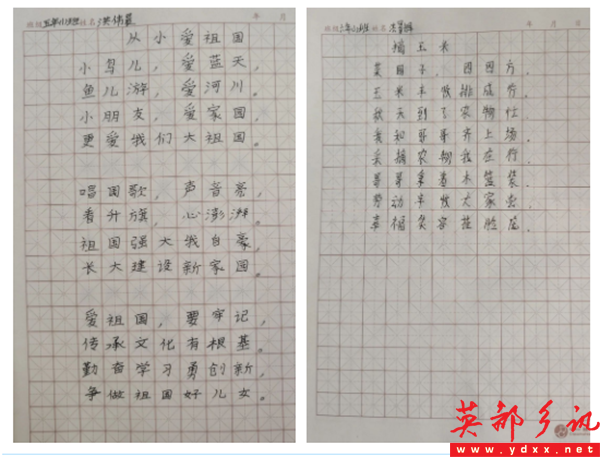 班级 姓名 洪伟晨 年 月
从小爱祖国
小鸟儿，爱蓝天，
鱼儿游，爱河川。
小朋友，爱家园，
更爱我们大祖国。
唱国歌，声音亮，
看升旗，心澎湃。
祖国强大我自豪，
长大建设新家园。
爱祖国，要牢记，
传承文化有根基。
勤奋学习勇创新，
争做祖国好儿女。
班级 姓名 年 月 日
摘玉米
菜园子，四四方，
玉米丰收排成行。
秋天到了农物忙
我和哥哥齐上场。
去摘农物我在行
哥哥拿着木篮装
劳动丰收大家尝
幸福笑容在脸庞。
英都乡讯
www.ydxx.net